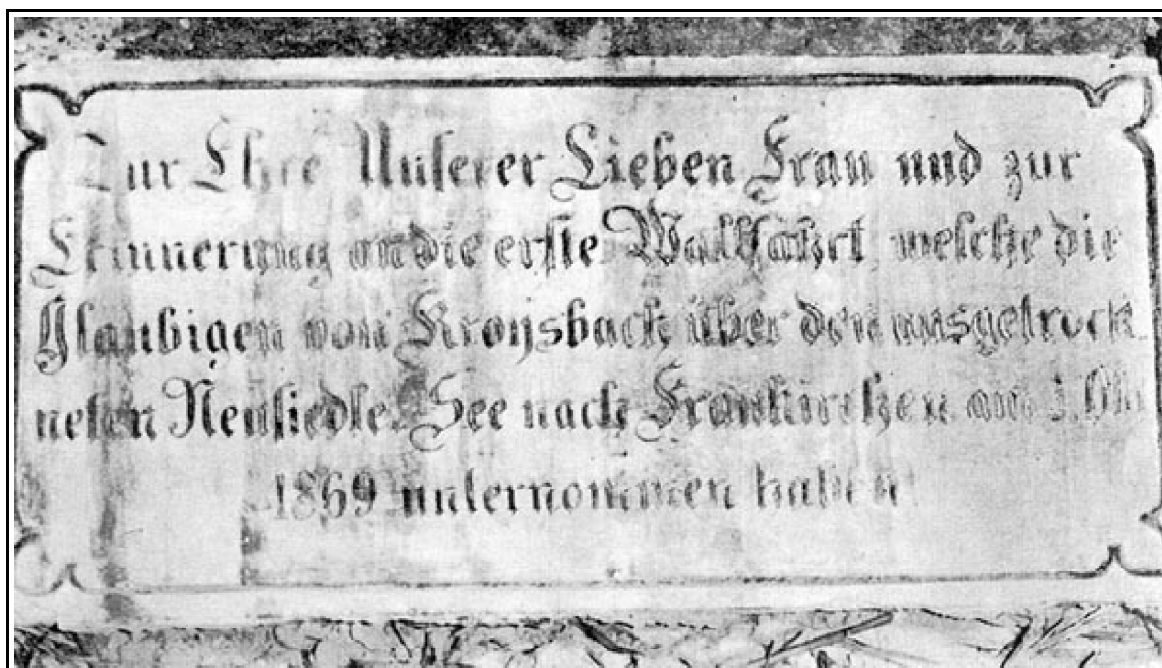 Zur Ehre Unserer Lieben Frau und zur
Erinnerung an die erste Wallfahrt welche die
Glaubigen von Kroisbach über den ausgetrock
neten Neusiedler See nach Fraukirchen am
1869 unternommen haben